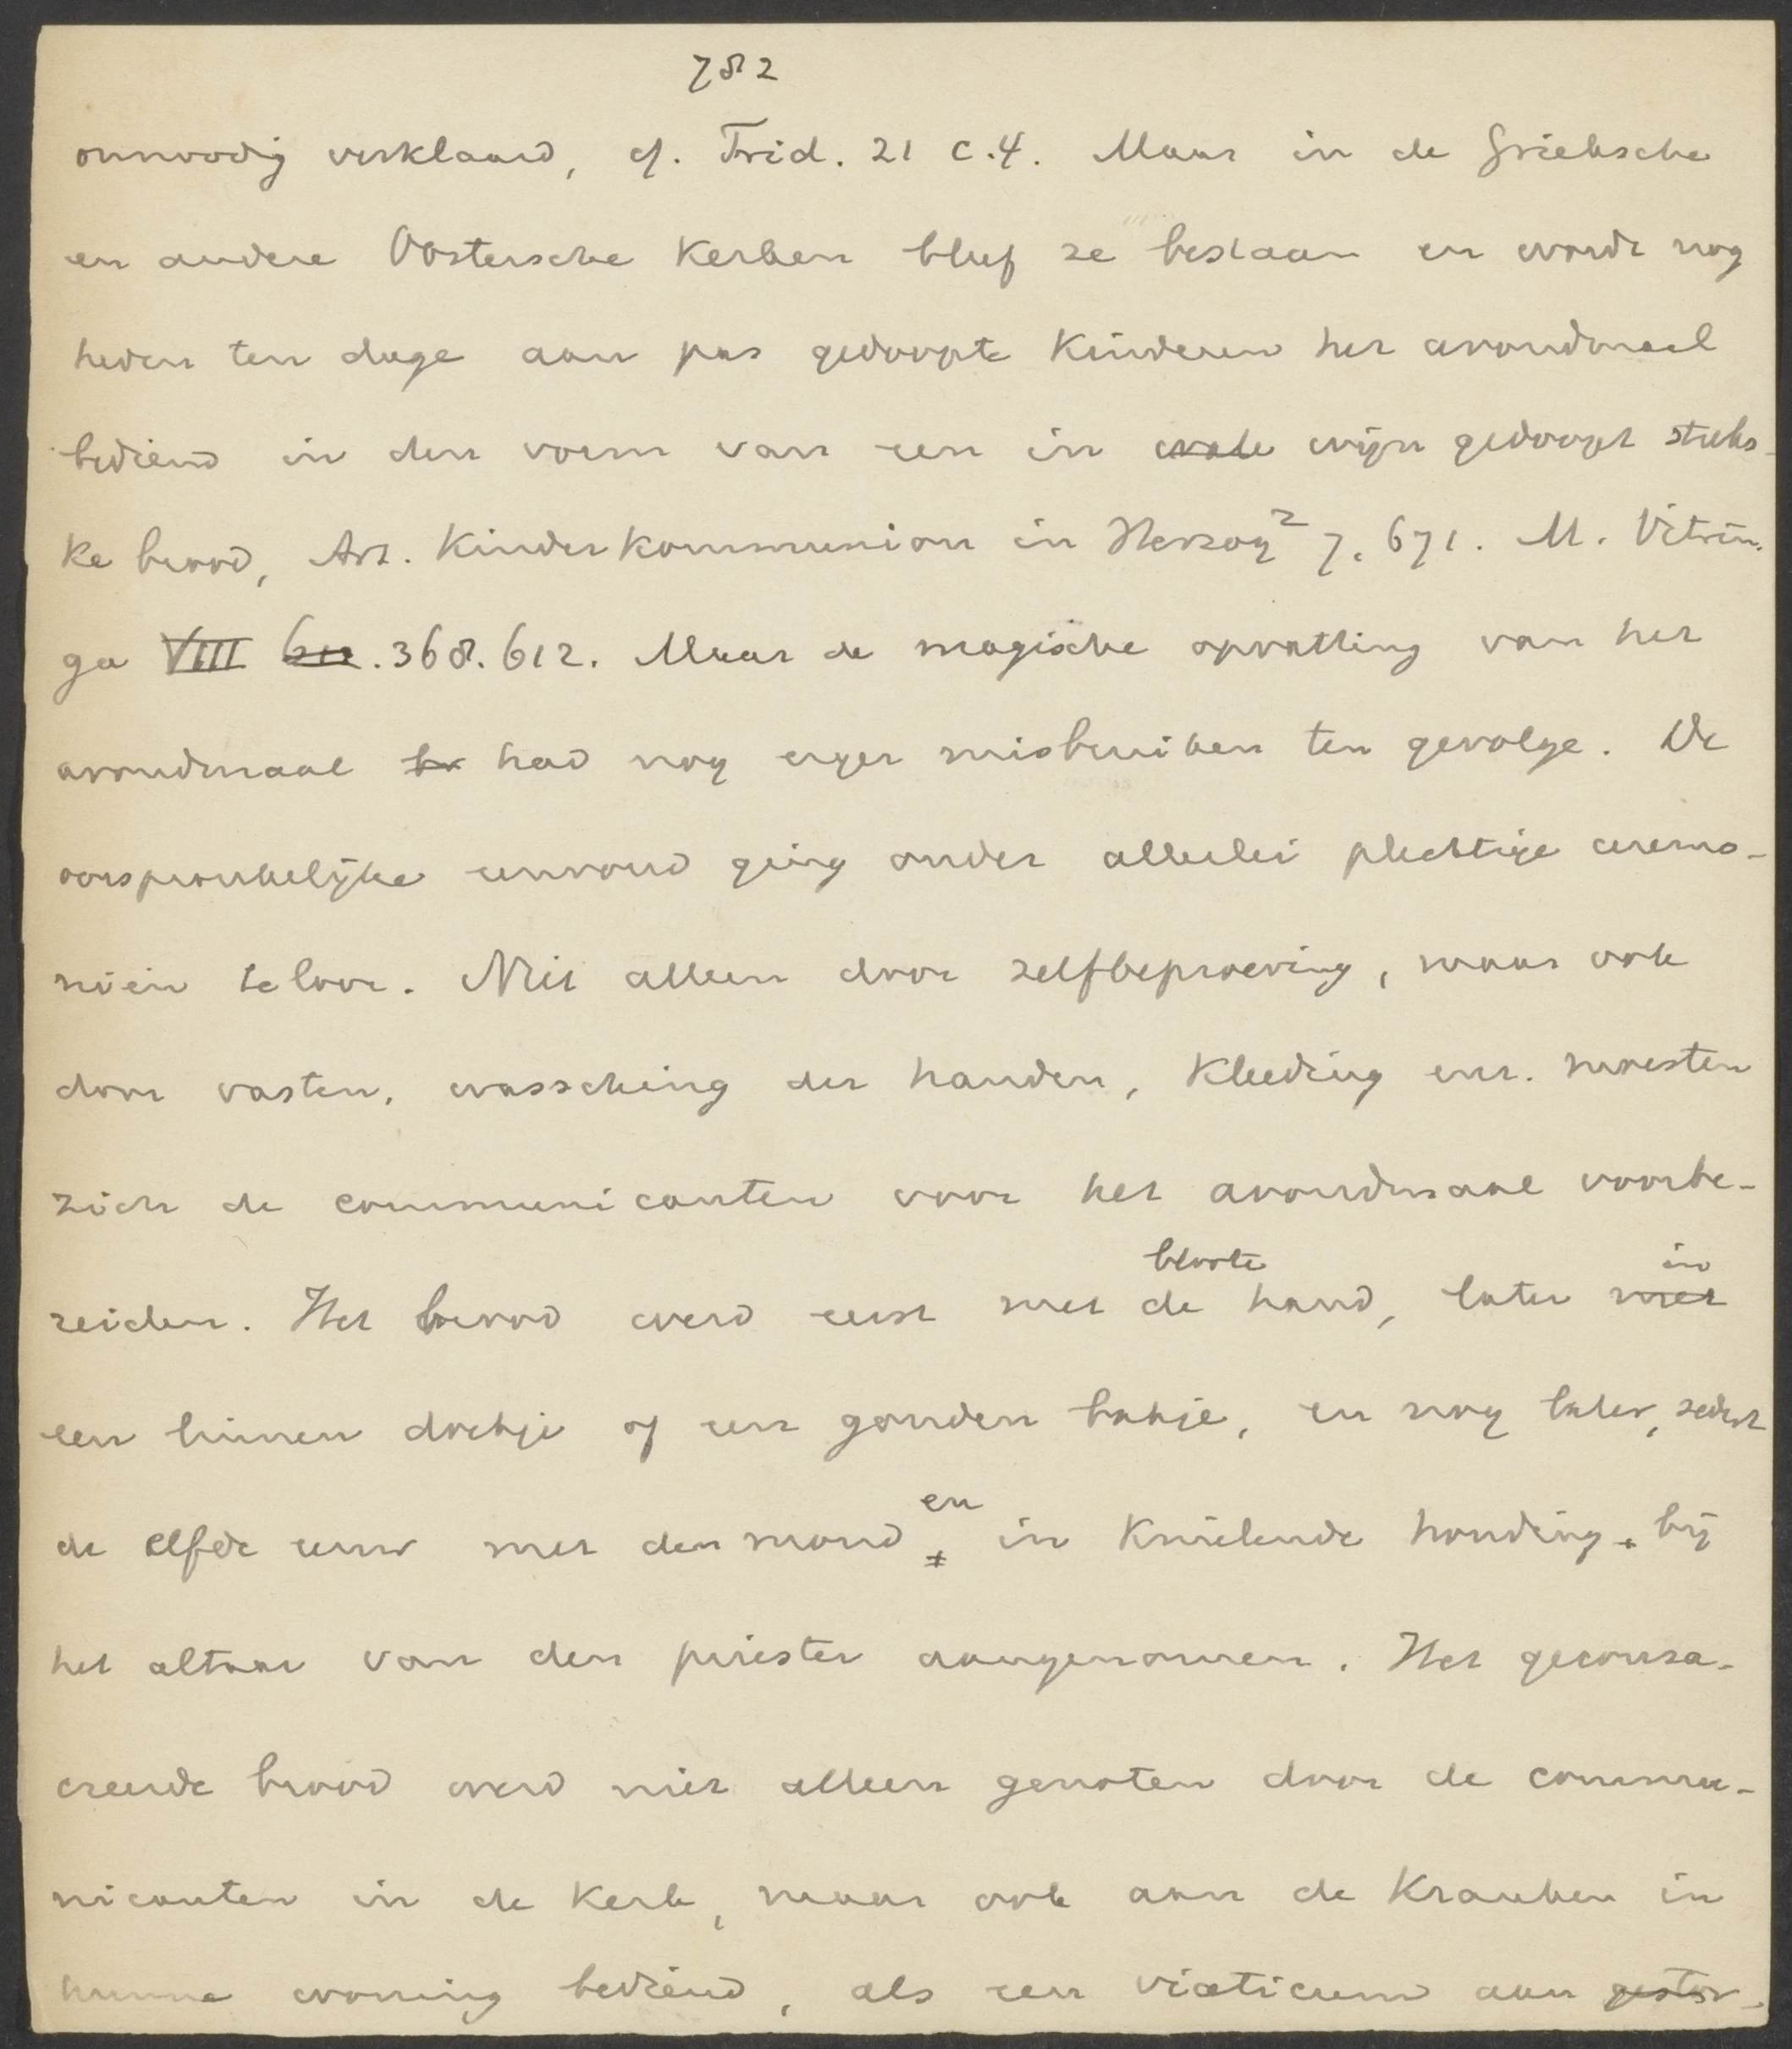 782
onnoodig verklaard, cf. Trid. 21 c.4. Maar in de Grieksche
en andere Oostersche Kerken bleef ze bestaan en wordt nog
heden ten dage aan pas gedoopte Kinderen het avondmaal
bediend in den vorm van een in wijn gedoopt stuks-
ke brood, Art. Kinderkommunion in Herzog² 7, 671. M. Vitrin-
ga VIII 612. 368. 612. Maar de magische opvatting van het
avondmaal br had nog erger misbruiken ten gevolge. De
oorspronkelijke eenvoud ging onder allerlei plechtige ceremo-
niën teloor. Niet alleen door zelfbeproeving, maar ook
door vasten, wassching der handen, kleeding enz. moesten
zich de communicanten voor het avondmaal voorbe-
reiden. Het brood werd eerst met de bloote hand, later met in
een linnen doekje of een gouden bakje, en nog later, sedert
de elfde eeuw met den mond en in knielende houding bij
het altaar van den priester aangenomen. Het geconsa-
creerde brood werd niet alleen genoten door de commu-
nicanten in de Kerk, maar ook aan de Kranken in
hunne woning bediend, als een viaticum aan gestor-